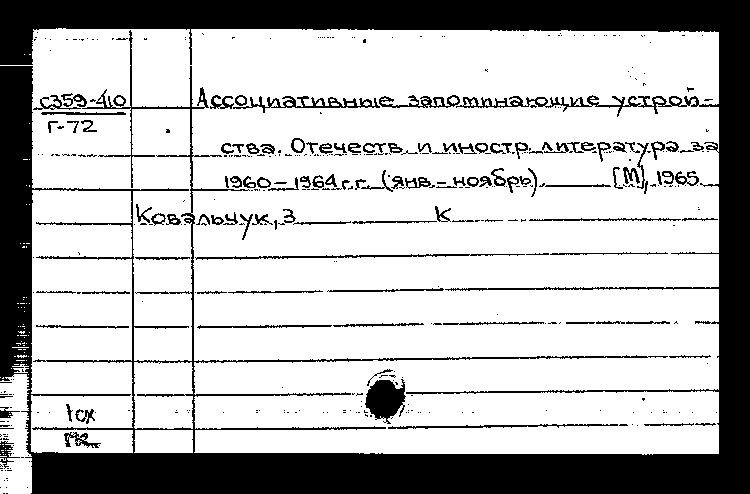 с359-410 Ассоциативные запоминающие устрой-
Г-72
ства. Отечеств. и иностр. литература за
1960-1964 г.г. (янв.-ноябрь). [М], 1965
Ковальчук, З К
1сх